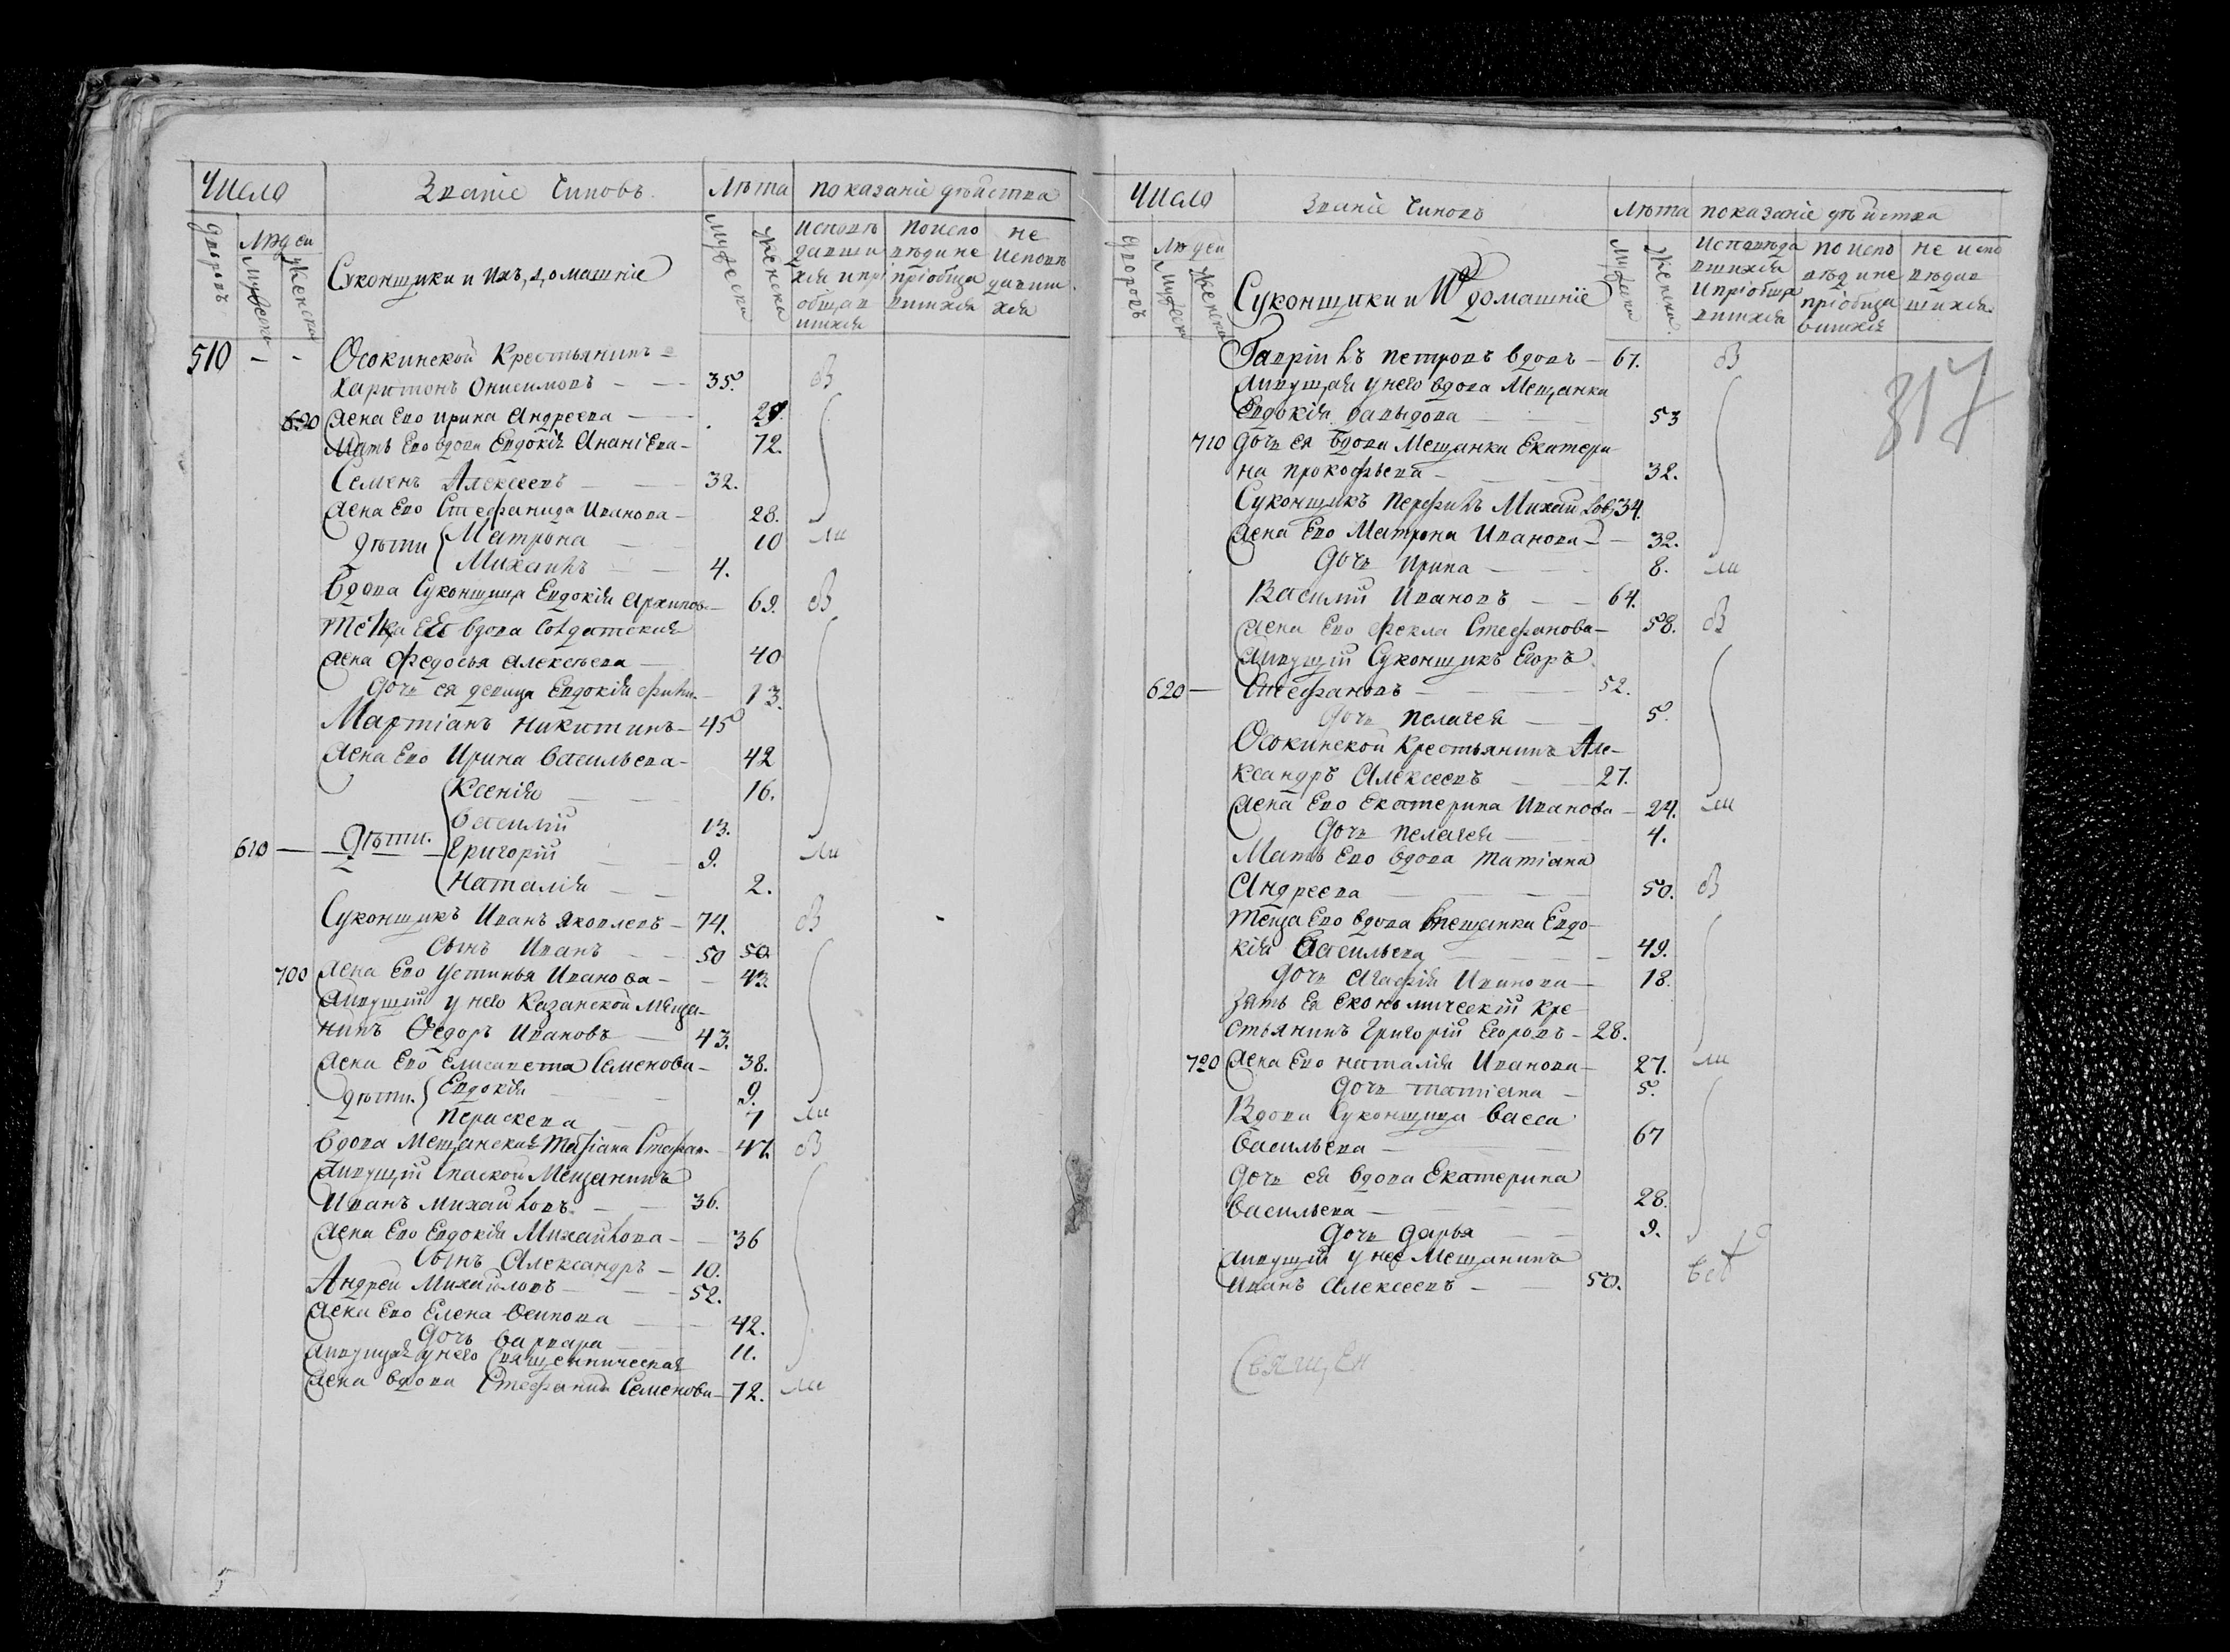 Число
Званіе Чиновъ
Лѣта
показаніе дѣйства
дворовъ
Людей
мужеска
Женска
Суконщики и ихъ домашніе
мужеска
Женска
исповѣ
давши
хся и прі
общав
шихся
поиспо
вѣди не
пріобща
вшихся
не
исповѣ
давши
хся
510 - -
Осокинской Крестьянинъ
Харитонъ Онисимовъ - 35.
В
690 Жена Его Ирина Андреева
Мать Его вдова Евдокія Ананіева - 72.
Семенъ Алексеевъ - 32.
Жена Его Стефанида Иванова - 28.
дѣти
Матрона 10
ма
Михаилъ 4.
Вдова Суконщица Евдокія Архипов 69.
В
вдова Солдатская
Жена Федосья Алексѣева 40
Дочь ея девица Евдокія 13.
Мартіанъ Никитинъ - 45
Жена Его Ирина Васильева - 42
Ксенія 16.
Василій 13.
610 - Дѣти.
Григорій 9.
ма
Наталія 2.
Суконщикъ Иванъ Яковлевъ - 74.
В
Сынъ Иванъ 50 50
700 Жена Его Устинья Иванова - 43.
Живущій у него Казанской Меща-
нинъ Федоръ Ивановъ 43.
Жена Его Елисавета Семенова - 38.
дѣти.
Евдокія 9.
Параскева 7
ма
Вдова Мещанская Татіана Стефан. 47.
В
Живущій Спаской Мещанинъ
Иванъ Михайловъ - 36.
Жена Его Евдокія Михайлова - 36
Сынъ Александръ - 10.
Андрей Михайловъ - 52.
Жена Его Елена Осипова 42.
Дочь Варвара 11.
Живущая у него Священническая
Жена вдова Стефанида Семенова - 72.
ма
5
Число
Званіе Чиновъ
Лѣта
показаніе дѣйства
дворовъ
Людей
мужеска
Женска
Суконщики и Их домашніе
мужеска
Женска
Исповѣда
вшихся
и пріобща
вшихся
поиспо
вѣди не
пріобща
вшихся
не испо
вѣдав
шихся
317
Гавріилъ Петровъ вдовъ - 67.
В
Живущая у него вдова Мещанка
Евдокія Давыдова 53
710 Дочь ея вдова Мещанка Екатери
на Прокофьева - 32.
Суконщикъ Перфилъ Михайлов 34.
Жена Его Матрона Иванова - 32.
Дочь Ирина 8.
ма
Василий Ивановъ - 64.
Жена Его Фекла Стефанова - 58.
В
Живущій Суконщикъ Егоръ
620 - Стефановъ 52.
Дочь Пелагея 5.
Осокинской Крестьянинъ Але-
ксандръ Алексеевъ 27.
Жена Его Екатерина Иванова - 24.
ма
Дочь Пелагея 4.
Мать Его вдова Татіана
Андреева 50.
В
Теща Его вдова Мещанка Евдо-
кія Васильева 49.
Дочь Агафія Иванова 18.
Зять Ея Економическій Кре
стьянинъ Григорій Егоровъ - 28.
720 Жена Его Наталія Иванова - 27.
ма
Дочь Татіана - 5.
Вдова Суконщица Васса
Васильева 67
Дочь ея вдова Екатерина
Васильева 28.
Дочь Дарья 9.
Живущій у нее Мещанинъ
Иванъ Алексеевъ - 50.
Священ